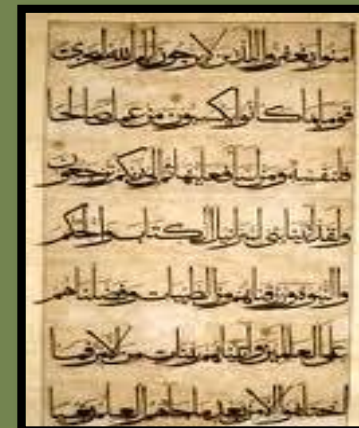 امنوا يغفروا للذين لا يرجون ايام الله ليجزى
قوما بما كانوا يكسبون من عمل صالحا
فلنفسه ومن اسا فعليها ثم الى ربكم ترجعون
ولقد اتينا بنى اسرايل الكتاب والحكم
والنبوة ورزقناهم من الطيبات وفضلناهم
على العالمين واتيناهم بينات من الامر فما
اختلفوا الا من بعد ما جاهم العلم بغيا